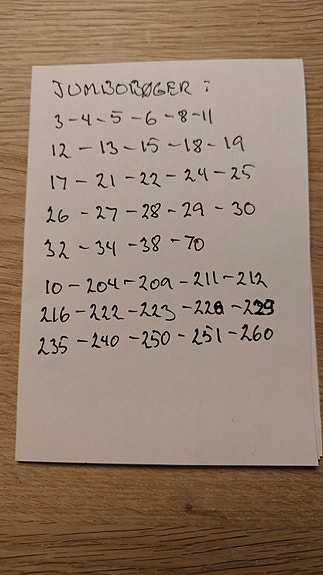 JUMBOBØGER :
3-4-5-6-8-11
12-13-15-18-19
17-21-22-24-25
26-27-28-29-30
32-34-38-70
10-204-209-211-212
216-222-223-228-229
235-240-250-251-260